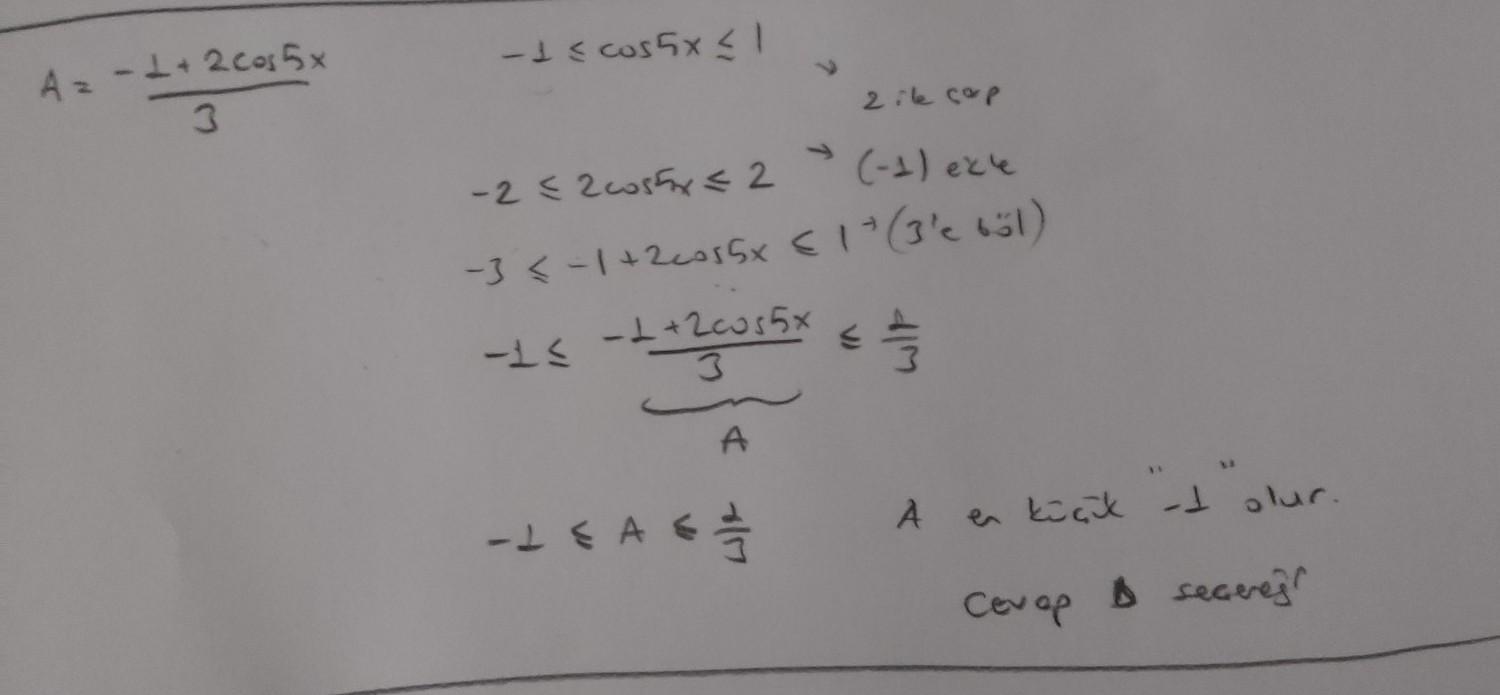 A = (-1 + 2cos5x) / 3
-1 ≤ cos5x ≤ 1 →
2 ile çarp
-2 ≤ 2cos5x ≤ 2 → (-1) ekle
-3 ≤ -1 + 2cos5x ≤ 1 → (3'e böl)
-1 ≤ (-1 + 2cos5x) / 3 ≤ 1/3
A
-1 ≤ A ≤ 1/3
A en küçük "-1" olur.
Cevap seçeneği